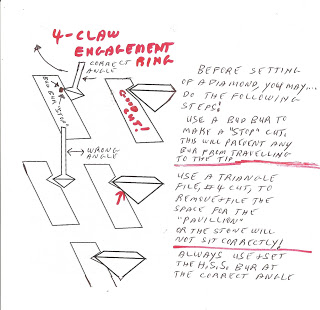 4-CLAW
ENGAGEMENT
RING
CORRECT
ANGLE
BUD BUR "STOP"
GOOD
CUT!
WRONG
ANGLE
BEFORE SETTING
OF A DIAMOND, YOU MAY...
DO THE FOLLOWING
STEPS:
USE A BUD BUR TO
MAKE A "STOP" CUT,
THIS WILL PREVENT ANY
BUR FROM TRAVELLING
TO THE TIP
USE A TRIANGLE
FILE, #4 CUT, TO
REMOVE+FILE THE
SPACE FOR THE
"PAVILLION"
OR THE STONE WILL
NOT SIT CORRECTLY!
ALWAYS USE+SET
THE H.S.S. BUR AT
THE CORRECT ANGLE